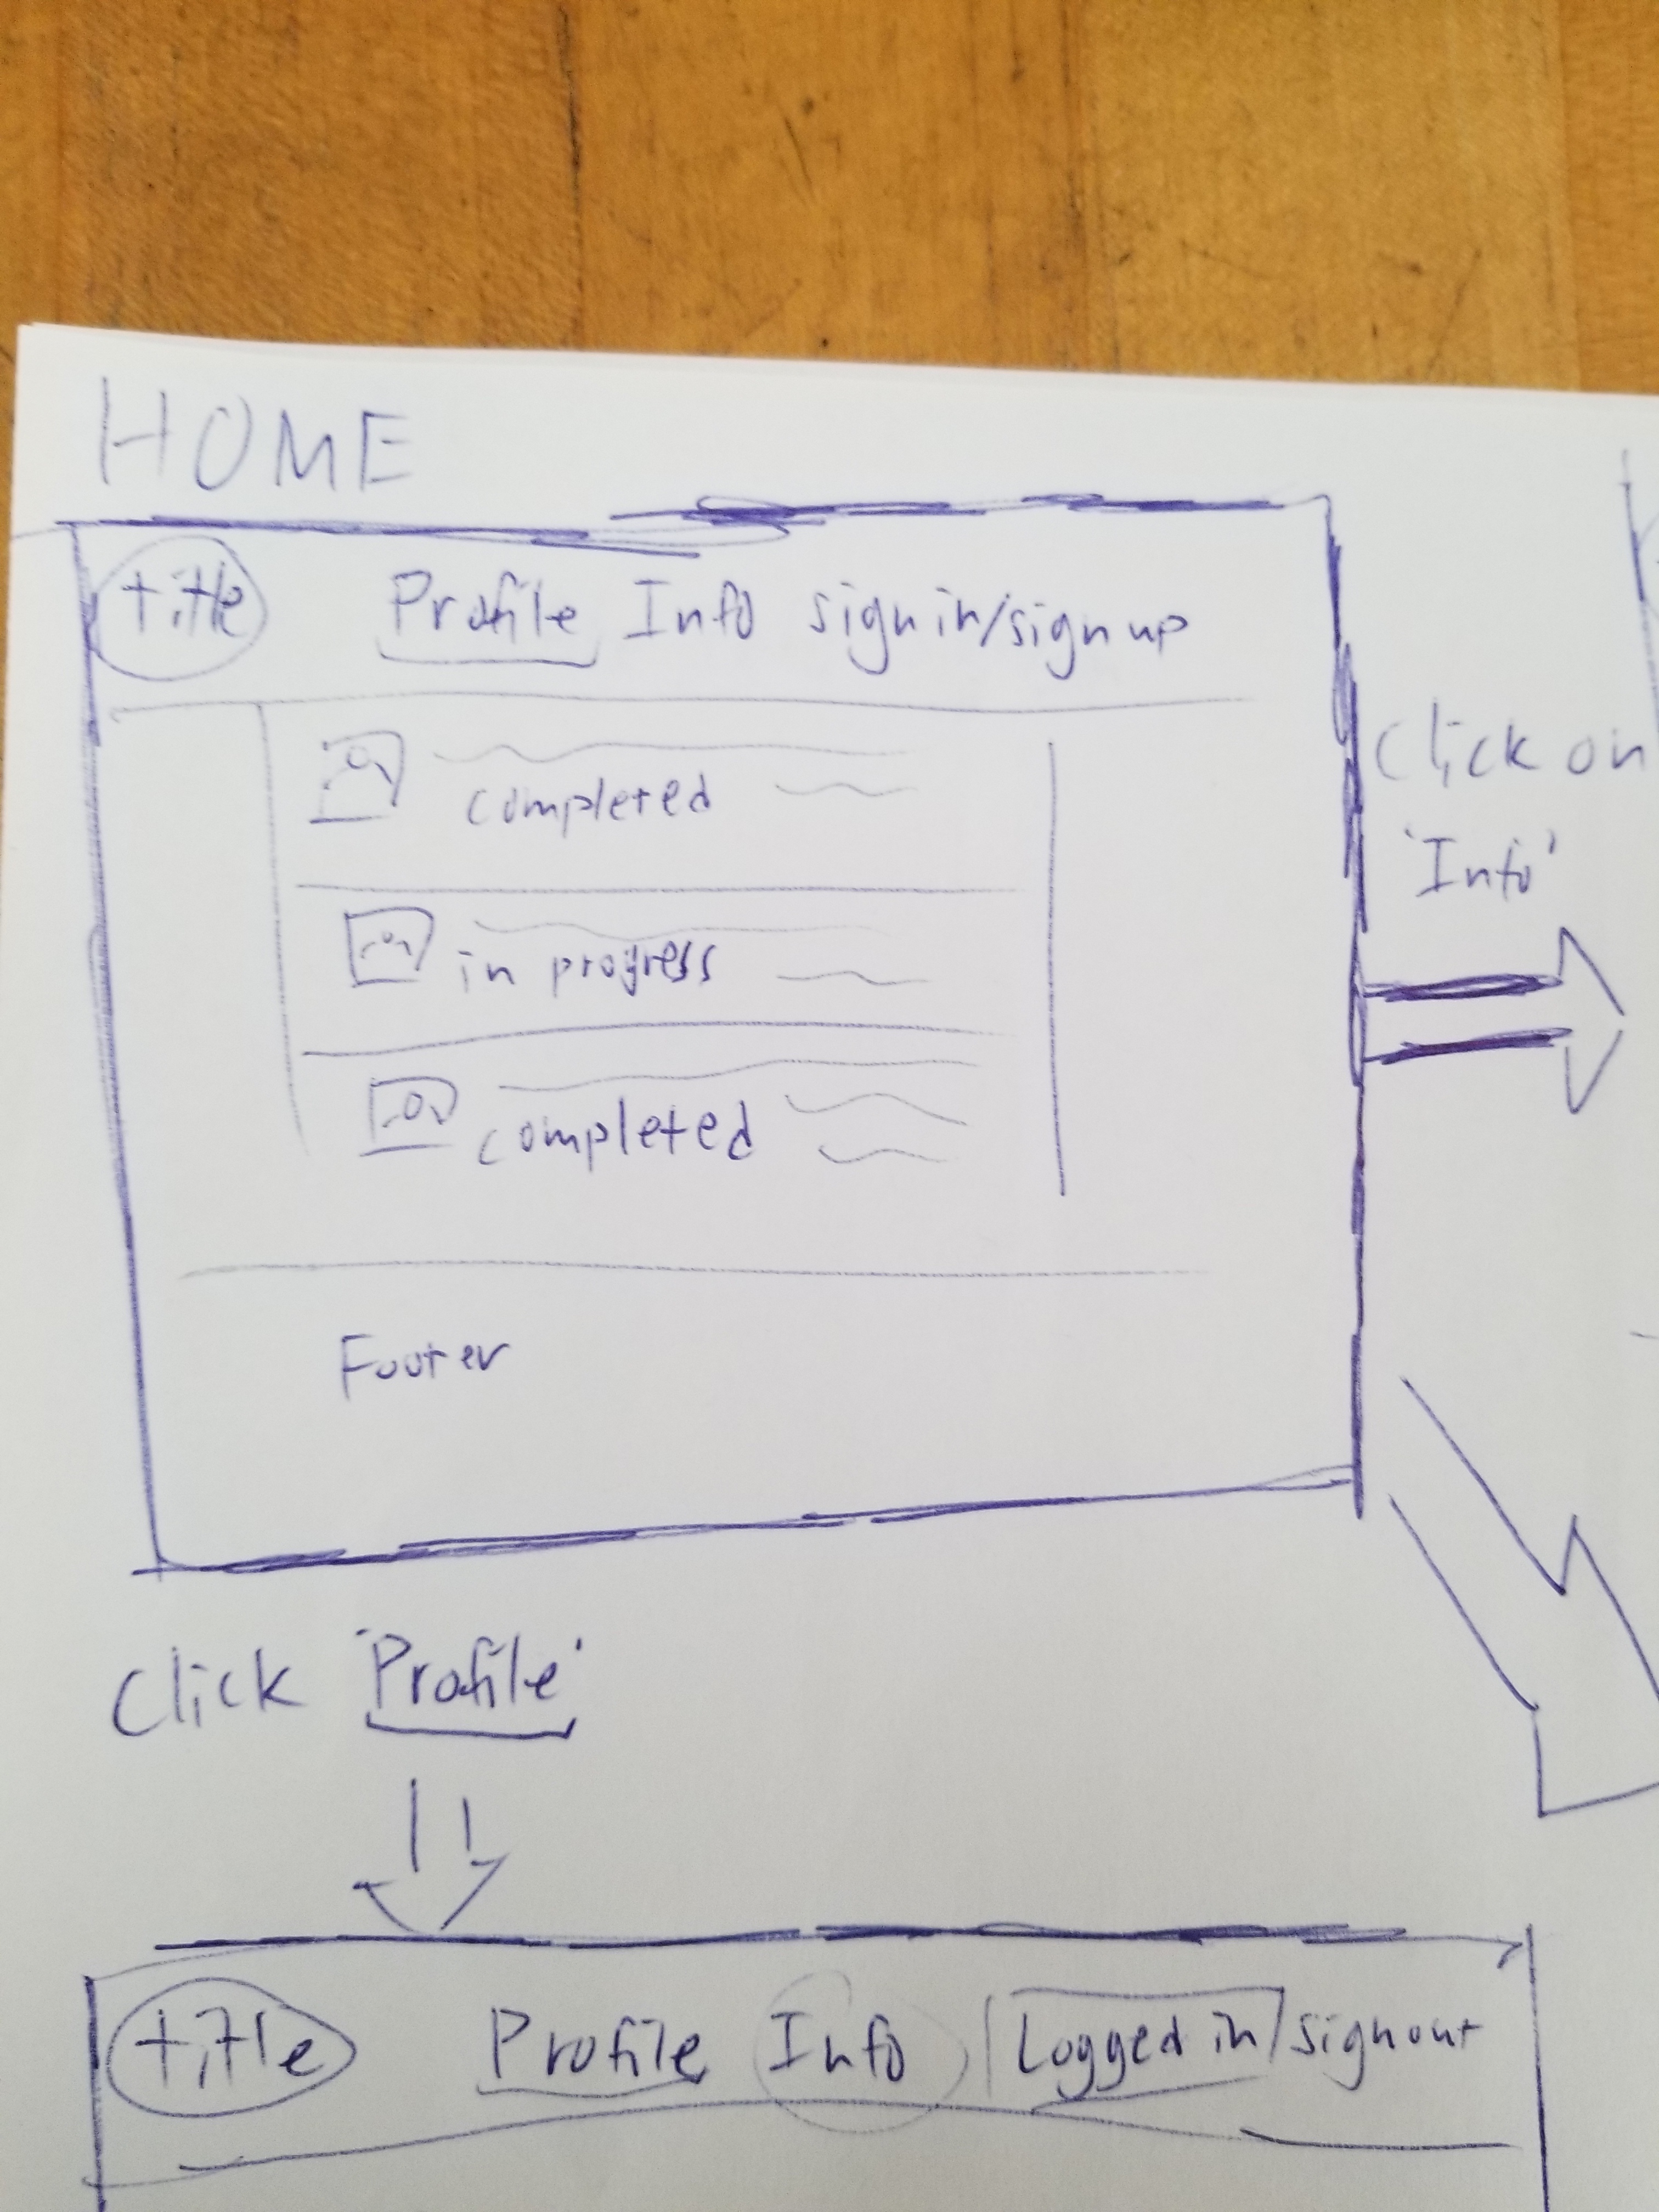 HOME
title Profile Info signin/signup
completed
in progress
completed
Footer
Click on
'Info'
Click 'Profile'
title Profile Info Logged in/signout